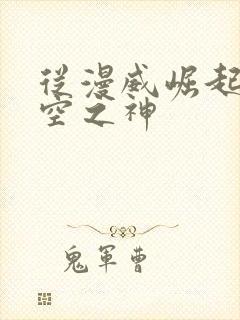 從漫威崛起
空之神
鬼軍曹